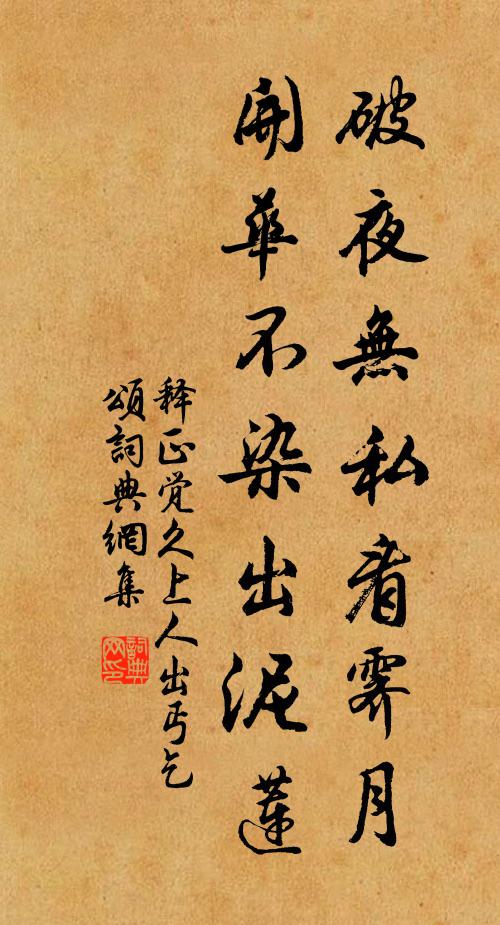 破夜無私看霽月
開華不染出泥蓮
释正觉久上人出丐乞
頌詞典網集
詞典網印